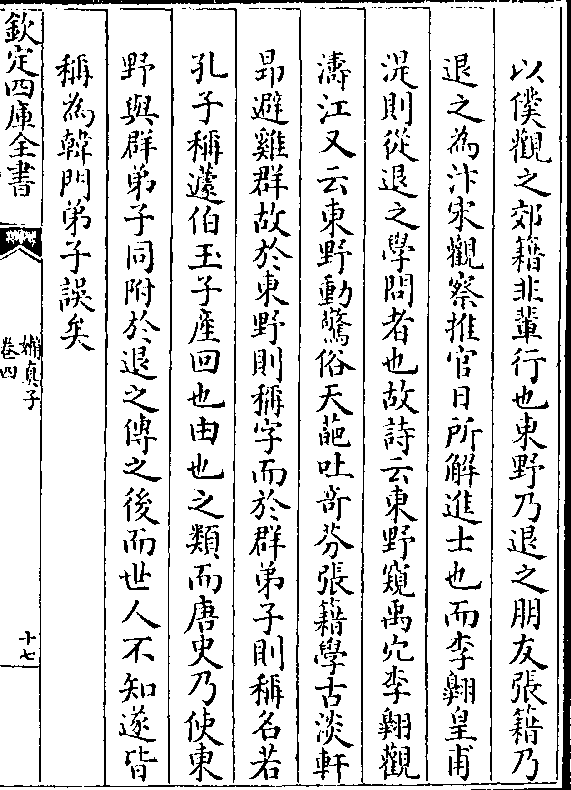 以僕觀之郊籍非輩行也東野乃退之朋友張籍乃
退之為汴宋觀察推官日所解進士也而李翺皇甫
湜則從退之學問者也故詩云東野窺禹穴李翺觀
濤江又云東野動驚俗天葩吐奇芬張籍學古淡軒
昂避雞群故於東野則稱字而於群弟子則稱名若
孔子稱蘧伯玉子產回也由也之類而唐史乃使東
野與群弟子同附於退之傳之後而世人不知遂皆
稱為韓門弟子誤矣
欽定四庫全書
嬾真子
卷四
十七